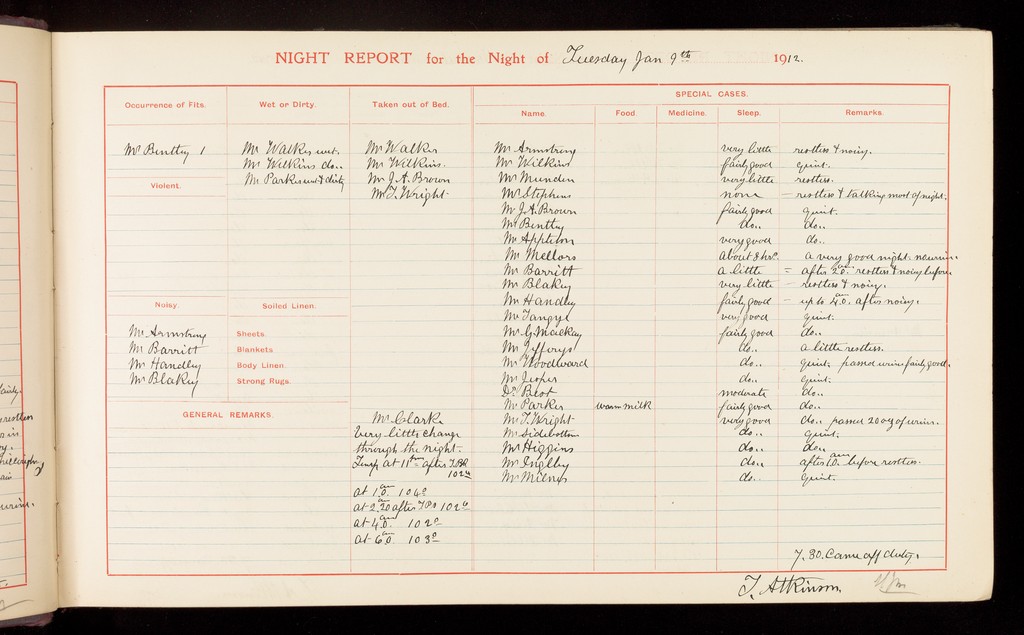 NIGHT REPORT for the Night of Tuesday Jan 9th 1912.
Occurrence of Fits.
Mr Bentley 1
Violent.
Noisy.
Mr Armstrong
Mr Barritt
Mr Handley
Mr Blakey
Wet or Dirty.
Mr Walker wet.
Mr Wilkins do..
Mr Parker wet & dirty
Soiled Linen.
Sheets
Blankets
Body Linen.
Strong Rugs.
Taken out of Bed.
Mr Walker
Mr Wilkins.
Mr J.A. Brown
Mr T. Wright.
GENERAL REMARKS.
Mr Clark.
Very little change
through the night.
Temp at 11 pm after T.P.
102
at 1.0 am 104°
at 2.20 am after T.P. 102
at 4.0 am 102°
at 6.0 am 103°
SPECIAL CASES.
Name. Food Medicine. Sleep. Remarks.
Mr Armstrong very little restless & noisy.
Mr Wilkins fairly good quiet.
Mr Munden very little restless.
Mr Stephens none – restless & talking most of night.
Mr J.A. Brown fairly good quiet.
Mr Bentley do.. do..
Mr Appleton very good do..
Mr Mellors about 8 hrs. a very good night. no urine.
Mr Barritt a little = after 2.0 am restless & noisy before
Mr Blakey very little – restless & noisy.
Mr Handley fairly good – up to 4.0 am. after noisy.
Mr Tangye very good quiet.
Mr G. Mackay fairly good do..
Mr Jefferys do.. a little restless.
Mr Woodward do.. quiet, passed urine fairly good.
Mr Jesper do.. quiet.
Dr Best moderate do..
Mr Parker warm milk fairly good do..
Mr T. Wright very good do.. passed 20 oz of urine.
Mr Sidebottom do.. quiet.
Mr Higgins do.. do..
Mr Inglby do.. after 1.0 am before restless.
Mr Milnes do.. quiet.
7.30. Came off duty.
T. Atkinson.